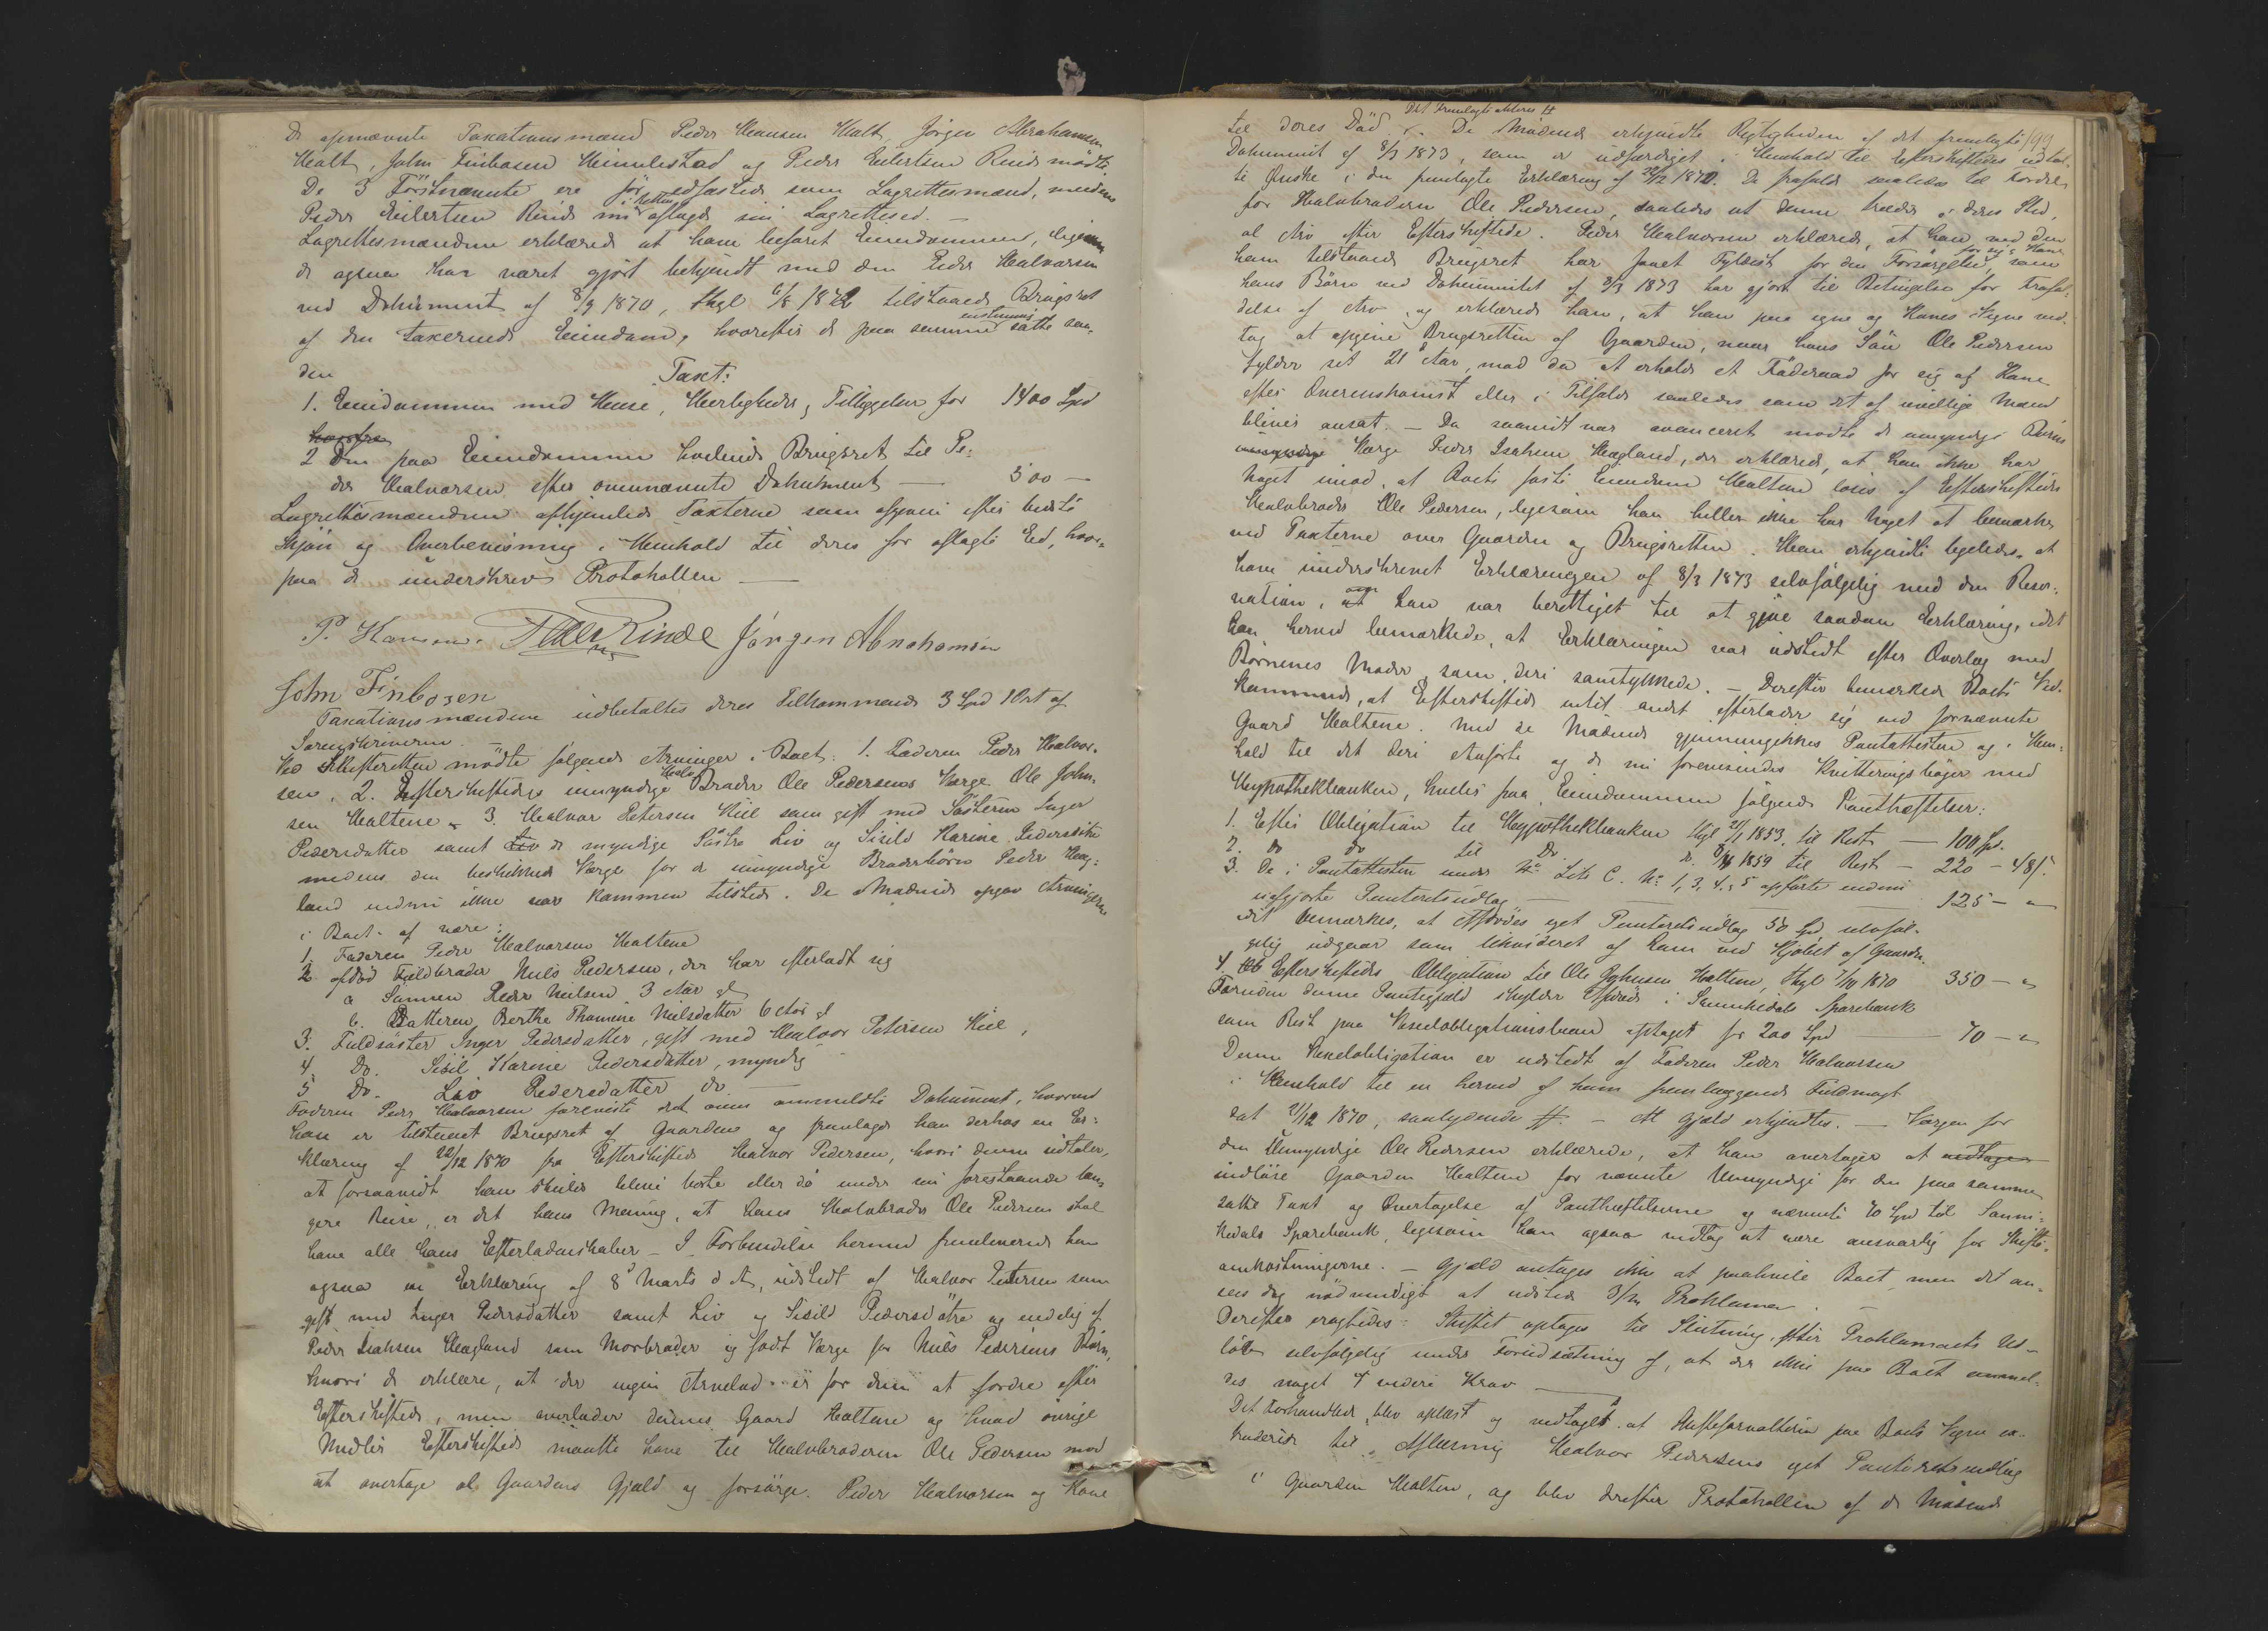 De opnævnte Taxationsmænd Peder Hansen Holt, Jörgen Abrahamsen
Holt, John Finbosen Himmelstad og Peder Eilertsen Rinde mödte.
De 3 Förstnævnte ere för edfæstede som Lagrettesmænd, medens
Peder Eilertsen Rinde nu i Retten aflagde sin Lagrettesed. —
Lagrettesmændene erklærede at have befaret Eiendommen, ligesom
de ogsaa har været gjort bekjendt med den Peder Halvorsen
ved Dokument af 8/9 1870, thgl 6/8 1872 tilstaaede Brugsret
af den taxerende Eiendom, hvorefter de paa samme enstemmig satte saa-
den
Taxt:
1. Eiendommen med Huse, Herligheder, Tilliggelser for 1400 Spd
hvorfra
2 Den paa Eiendommen hvilende Brugsret til Pe-
der Halvorsen efter ovennævnte Dokument — 500 —
Lagrettesmændene afhjemlede Taxterne som afgivne efter bedste
Skjön og Overbevisning i Henhold til deres för aflagte Ed, hvor-
paa de underskrev Protokollen —
P. Hansen. Peder Rinde Jörgen Abrahamsen
John Finbosen
Taxationsmændene udbetaltes deres Tilkommende 3 Spd 1 Ort af
Sorenskriveren —
Ved Skifteretten mödte fölgende Arvinger i Boet: 1. Faderen Peder Halvor-
sen, 2. Efterskiftedes umyndige Halv Broder Ole Pedersens Værge Ole John-
sen Holtene, 3. Halvor Petersen Kiil som gift med Sösteren Inger
Pedersdatter samt Liv de myndige Söstre Liv og Sisild Karine Pedersdötre
medens den beskikkede Værge for de umyndige Broderbörn Peder Hag-
land endnu ikke var kommen tilstede. De Mödende opgav Arvingerne
i Boet at være:
1. Faderen Peder Halvorsen Holtene
2. afdöd Fuldbroder Niels Pedersen, der har efterladt sig
a Sönnen Peder Nielsen 3 Aar gl
b. Datteren Berthe Thomine Nielsdatter 6 Aar gl
3. Fuldsöster Inger Pedersdatter, gift med Halvor Petersen Kiil,
4. Do. Sisil Karine Pedersdatter, myndig
5 Do. Liv Pedersdatter do —
Faderen Peder Halvorsen foreviste det oven ommeldte Dokument, hvorved
han er tilstaaet Brugsret af Gaarden og fremlagde han derhos en Er-
klæring af 22/12 1870 fra Efterskiftede Halvor Pedersen, hvori denne udtaler,
at forsaavidt han skulde blive borte eller dö under sin forestaaende læn-
gere Reise, er det hans Mening, at hans Halvbroder Ole Pedersen skal
have alle hans Efterladenskaber — I Forbindelse hermed fremleverede han
ogsaa en Erklæring af 8de Marts d. A., udstedt af Halvor Petersen som
gift med Inger Pedersdatter samt Liv og Sisild Pedersdötre og endelig af
Peder Isaksen Hagland som Morbroder og födt Værge for Niels Pedersens Börn,
hvori de erklære, at der ingen Arvelod er for dem at fordre efter
Efterskiftede, men overlader dennes Gaard Holtene og hvad övrige
Midler Efterskiftede maatte have til Halvbroderen Ole Pedersen mod
at overtage al Gaardens Gjæld og forsörge Peder Halvorsen og Kone
199
til deres Död. Det fremlagte akteres #
De Mödende erkjendte Rigtigheden af det fremlagte
Dokument af 8/3 1873, som er udfærdiget i Henhold til Efterskiftedes udtal-
te Önske i den fremlagte Erklæring af 22/12 1870. De frafaldt saaledes til Fordel
for Halvbroderen Ole Pedersen, saaledes at denne træder i deres Sted,
al Arv efter Efterskiftede. Peder Halvorsen erklærede, at han ved den
ham tilstaaede Brugsret har faaet Fyldest for den Forsörgelse for sig & Kone som
hans Börn ved Dokumentet af 8/3 1873 har gjort til Betingelse for Frafal-
delse af Arv, og erklærede han, at han paa egne og Kones Vegne ved-
tog at opgive Brugsretten af Gaarden, naar hans Sön Ole Pedersen
fylder sit 21 Aar, mod da at erholde et Föderaad for sig og Kone
efter Overenskomst eller i Tilfælde saaledes som det af uvillige Mænd
bliver ansat. — Da saavidt var avanceret mödte de umyndige Börns
umyndige Værge Peder Isaksen Hagland, der erklærede, at han ikke har
noget imod, at Boets faste Eiendom Holtene loses af Efterskiftedes
Halvbroder Ole Pedersen, ligesom han heller ikke har Noget at bemærke
ved Taxterne over Gaarden og Brugsretten. Han erkjendte ligeledes, at
have underskrevet Erklæringen af 8/3 1873 selvfölgelig med den Reser-
vation, at om han var berettiget til at give saadan Erklæring, idet
han herved bemærkede, at Erklæringen var udstedt efter Overlæg med
Börnenes Moder, som deri samtykkede. — Derefter bemærkede Boets Ved-
kommende, at Efterskiftede intet andet efterlader sig end fornævnte
Gaard Holtene. Med de Mödende gjennemgikkes Pantattesten og i Hen-
hold til det deri Anförte og de nu forevisende Kvitteringsböger med
Hypothekbanken, hviler paa Eiendommen fölgende Panthæftelser:
1. Efter Obligation til Hypothekbanken thgl 21/1 1853, til Rest — 100 Spd.
2. do do til Do. do. 1859 til Rest — 220 — 48 ß.
3. De i Pantattesten under No Litr C. No 1, 3, 4, 5 opförte endnu
uafgjorte Panteretsudlæg — 125 — "
Det bemærkes, at Afdödes eget Panteretsudlæg 50 Spd selvföl-
gelig udgaar som likvideret af ham ved Kjöbet af Gaarden.
4. Ob Efterskiftedes Obligation til Ole Johnsen Holtene, thgl 1870 350 — "
Foruden denne Pantegjæld skylder Afdöde i Sannikedals Sparebank
som Rest paa Vexelobligationslaan optaget for 200 Spd — 70 — "
Denne Vexelobligation er udstedt af Faderen Peder Halvorsen
i Henhold til en herved af ham fremlæggende Fuldmagt
dat 21/12 1870, saalydende #. — Al Gjæld erkjendtes. — Værgen for
den Umyndige Ole Pedersen erklærede, at han overtager at vedtager
indlöse Gaarden Holtene for nævnte Umyndige for den paa samme
satte Taxt og Overtagelse af Panthæftelserne og nævnte 70 Spd til Sanni-
kedals Sparebank, ligesom han ogsaa vedtog at være ansvarlig for Skifte-
omkostningerne. — Gjæld antages ikke at paahvile Boet, men det an-
sees dog nödvendigt at udstede Proklama. —
Derefter eragtedes: Skiftet optages til Slutning, efter Proklamaets Ud-
löb selvfölgelig under Forudsætning af, at der ikke paa Boet anmel-
des noget videre Krav —
Det Forhandlede blev oplæst og vedtaget at Skifteforvalteren paa Boets Vegne
til Aflæsning Halvor Pedersens eget Panteretsudlæg
i Gaarden Holtene, og blev derefter Protokollen af de Mödende